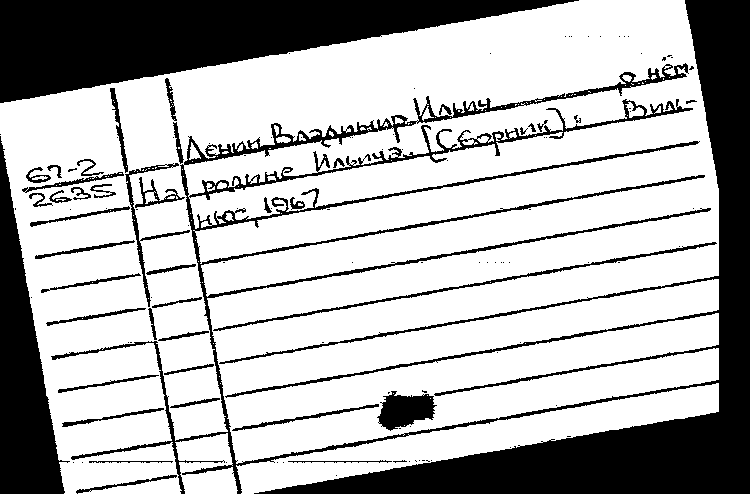 Ленин, Владимир Ильич о нём.
67-2
2635
На родине Ильича. [Сборник]. Виль-
нюс, 1967